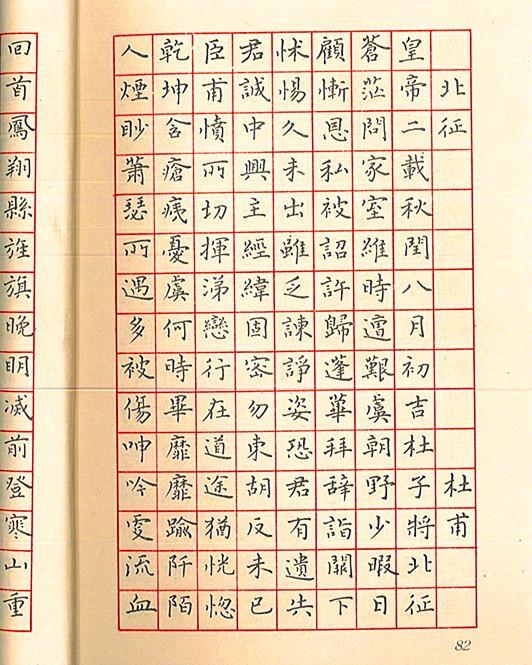 北征 杜甫
皇帝二載秋閏八月初吉杜子將北征
蒼茫問家室維時遭艱虞朝野少暇日
顧慚恩私被詔許歸蓬華拜辞詣闕下
怵惕久未出雖乏諫諍姿恐君有遺失
君誠中興主經緯固密勿東胡反未已
臣甫憤所切揮涕戀行在道途猶恍惚
乾坤含瘡痍憂虞何時畢靡靡踰阡陌
人煙眇蕭瑟所遇多被傷呻吟更流血
回首鳳翔縣旌旗晚明滅前登寒山重
82